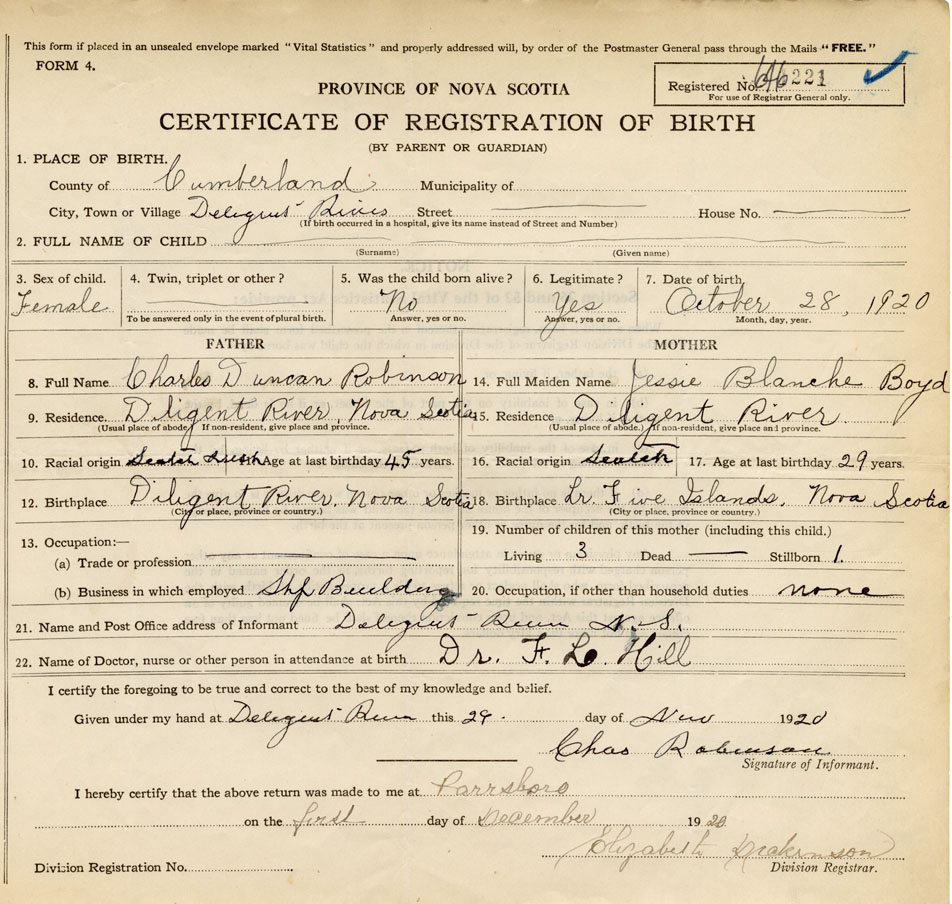 This form if placed in an unsealed envelope marked "Vital Statistics" and properly addressed will, by order of the Postmaster General pass through the Mails "FREE."
FORM 4.
Registered No. 221
For use of Registrar General only.
PROVINCE OF NOVA SCOTIA
CERTIFICATE OF REGISTRATION OF BIRTH
(BY PARENT OR GUARDIAN)
1. PLACE OF BIRTH.
County of Cumberland Municipality of
City, Town or Village Deligent River Street House No.
(If birth occurred in a hospital, give its name instead of Street and Number)
2. FULL NAME OF CHILD
(Surname) (Given name)
3. Sex of child. 4. Twin, triplet or other? 5. Was the child born alive? 6. Legitimate? 7. Date of birth.
Female No Yes October 28, 1920
To be answered only in the event of plural birth. Answer, yes or no. Answer, yes or no. Month, day, year.
FATHER MOTHER
8. Full Name Charles Duncan Robinson 14. Full Maiden Name Jessie Blanche Boyd
9. Residence. Diligent River, Nova Scotia 15. Residence Diligent River
(Usual place of abode.) If non-resident, give place and province. (Usual place of abode.) If non-resident, give place and province.
10. Racial origin Scotch Irish Age at last birthday 45 years. 16. Racial origin Scotch 17. Age at last birthday 29 years.
12. Birthplace Diligent River, Nova Scotia 18. Birthplace Lr. Five Islands, Nova Scotia
(City or place, province or country.) (City or place, province or country.)
19. Number of children of this mother (including this child.)
13. Occupation:—
Living 3 Dead Stillborn 1.
(a) Trade or profession
(b) Business in which employed Ship Building 20. Occupation, if other than household duties none
21. Name and Post Office address of Informant Deligent River N.S.
22. Name of Doctor, nurse or other person in attendance at birth Dr. F. L. Hill
I certify the foregoing to be true and correct to the best of my knowledge and belief.
Given under my hand at Deligent River this 29. day of Nov 1920
Chas Robinson
Signature of Informant.
I hereby certify that the above return was made to me at Parrsboro
on the first day of December 1920
Elizabeth
Division Registration No. Division Registrar.